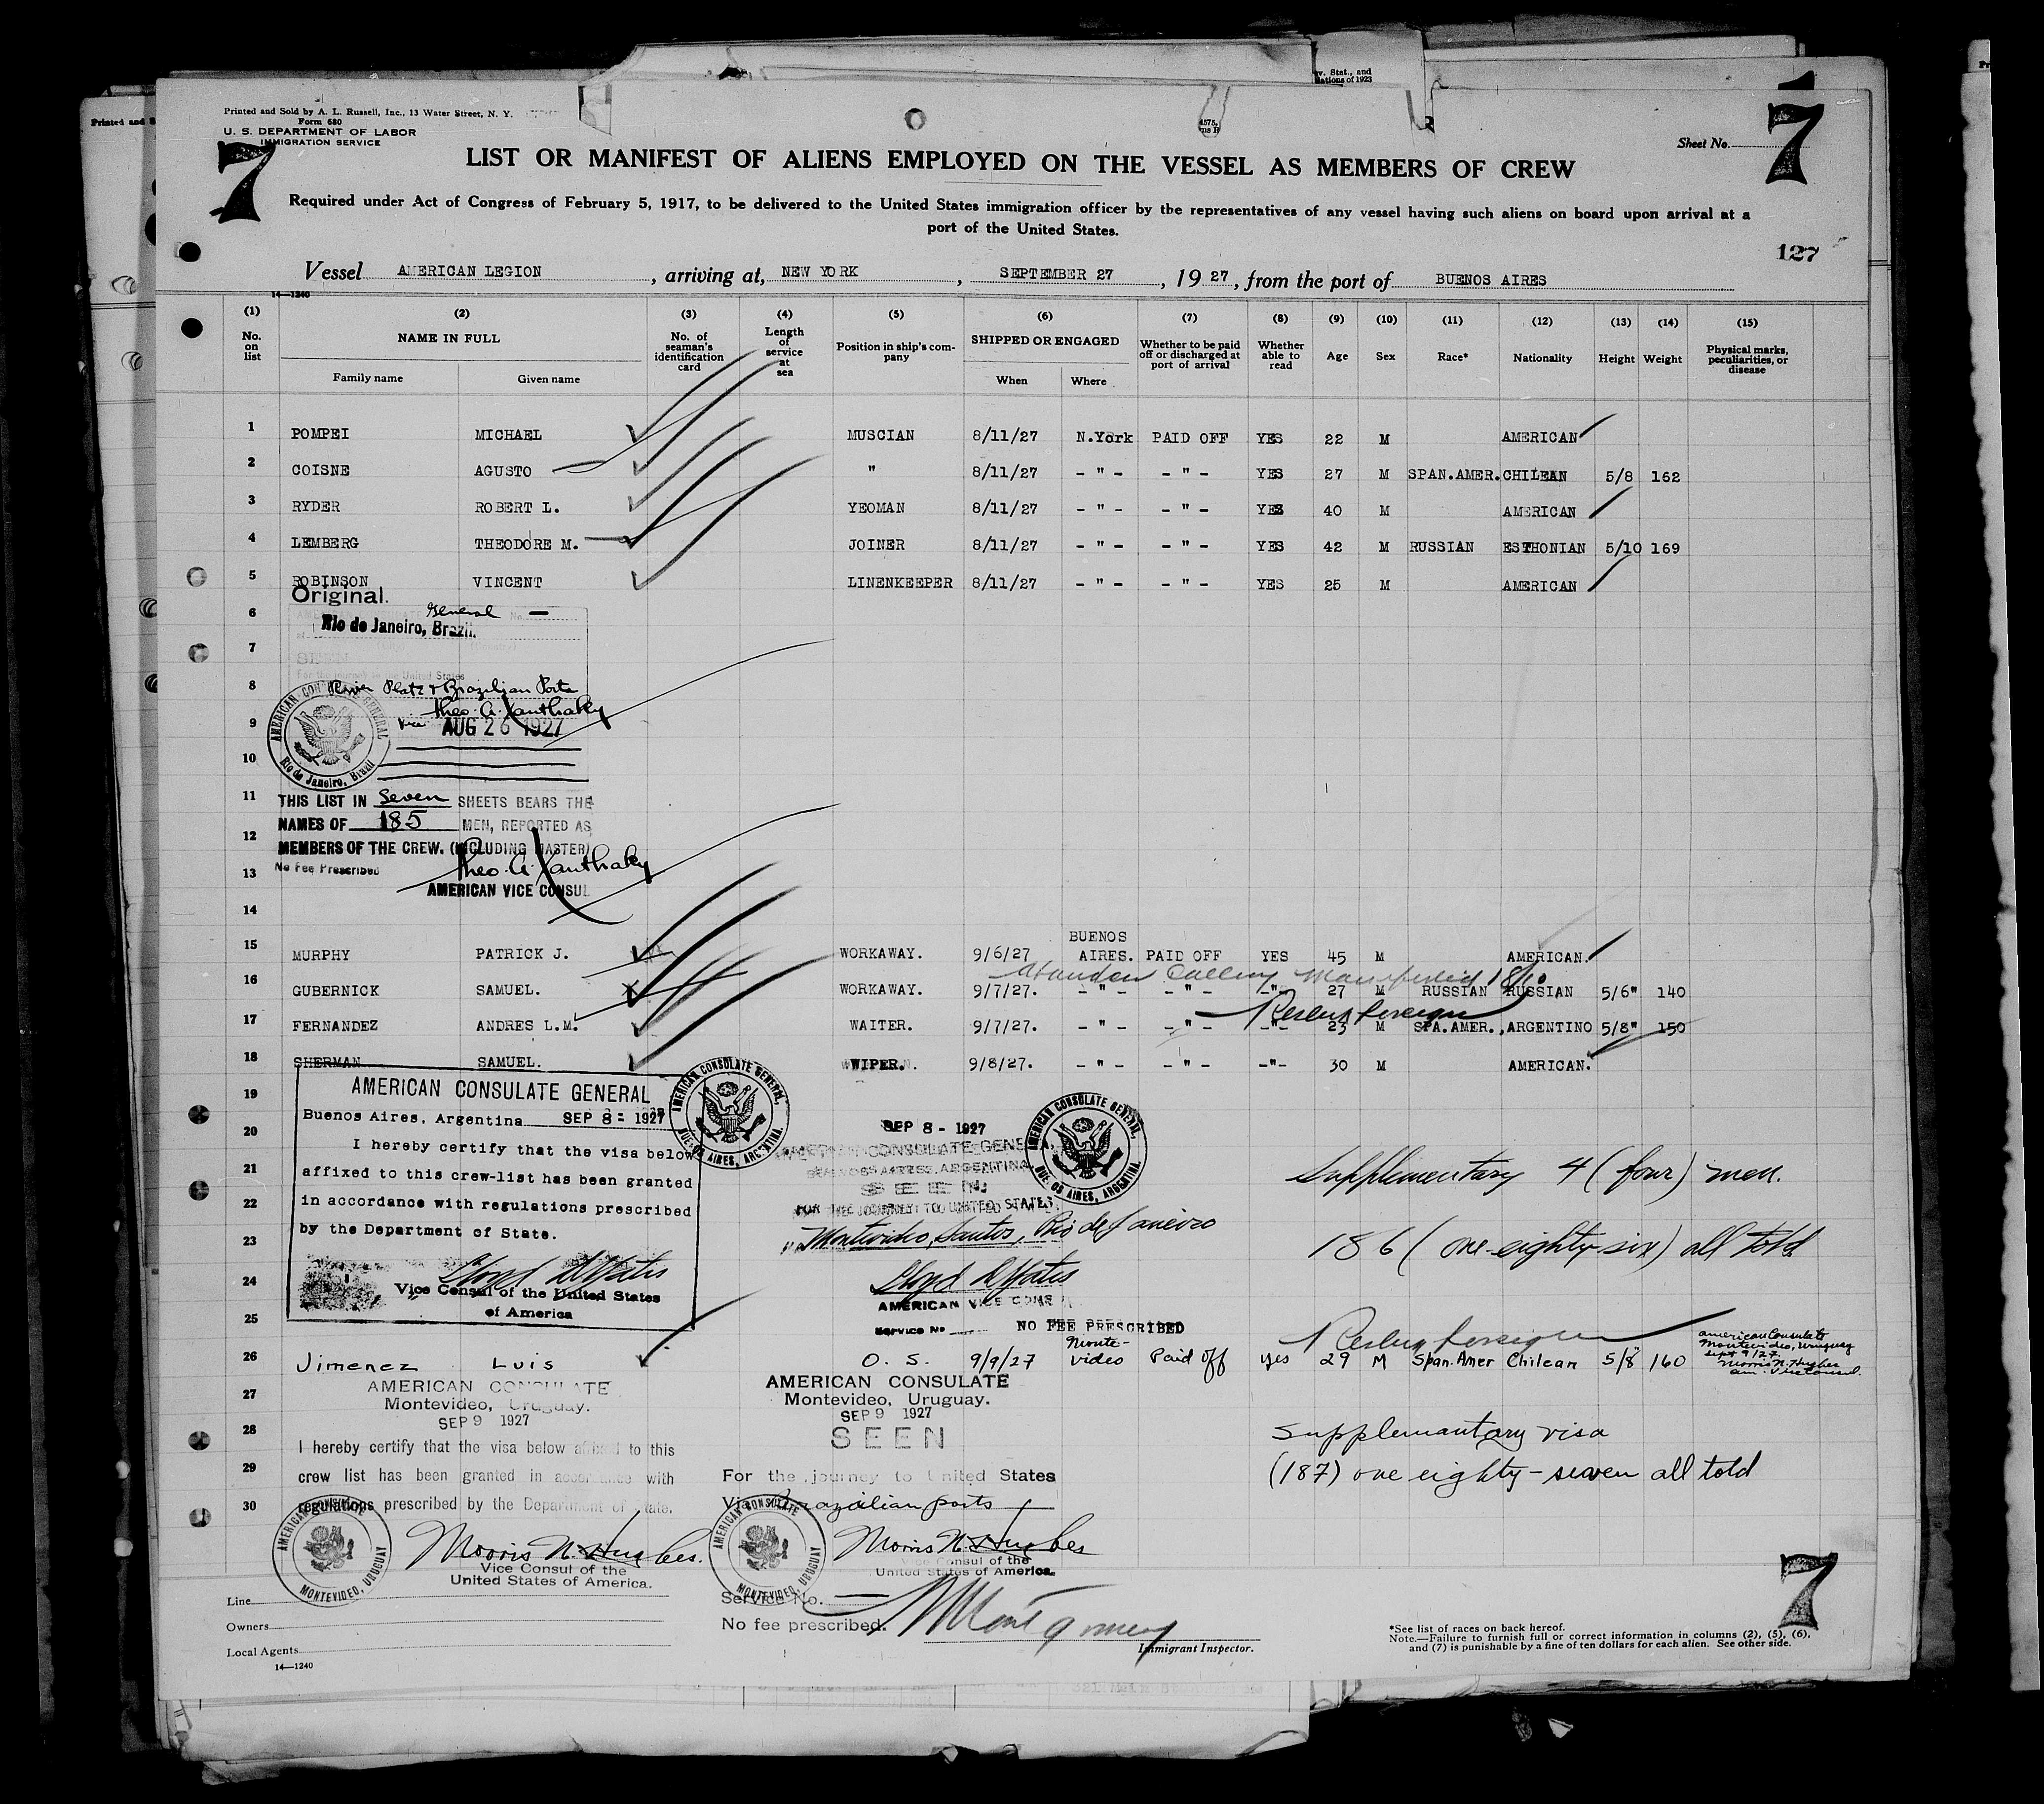 Printed and Sold by A. L. Russell, Inc., 13 Water Street, N. Y.
Form 680
U. S. DEPARTMENT OF LABOR
IMMIGRATION SERVICE
v. Stat., and
lations of 1923
Sheet No.
7
7
LIST OR MANIFEST OF ALIENS EMPLOYED ON THE VESSEL AS MEMBERS OF CREW
Required under Act of Congress of February 5, 1917, to be delivered to the United States immigration officer by the representatives of any vessel having such aliens on board upon arrival at a
port of the United States.
127
Vessel AMERICAN LEGION, arriving at, NEW YORK, SEPTEMBER 27, 1927, from the port of BUENOS AIRES
14—1240
(1) No. on list (2) NAME IN FULL Family name Given name (3) No. of seaman's identification card (4) Length of service at sea (5) Position in ship's company (6) SHIPPED OR ENGAGED When Where (7) Whether to be paid off or discharged at port of arrival (8) Whether able to read (9) Age (10) Sex (11) Race* (12) Nationality (13) Height (14) Weight (15) Physical marks, peculiarities, or disease
1 POMPEI MICHAEL MUSCIAN 8/11/27 N.York PAID OFF YES 22 M AMERICAN
2 COISNE AGUSTO " 8/11/27 - " - - " - YES 27 M SPAN.AMER. CHILEAN 5/8 162
3 RYDER ROBERT L. YEOMAN 8/11/27 - " - - " - YES 40 M AMERICAN
4 LEMBERG THEODORE M. JOINER 8/11/27 - " - - " - YES 42 M RUSSIAN ESTHONIAN 5/10 169
5 ROBINSON VINCENT LINENKEEPER 8/11/27 - " - - " - YES 25 M AMERICAN
Original.
6 General
Rio de Janeiro, Brazil.
7 SEEN
For the journey to United States
8 River Plate & Brazilian Ports
Theo. A. Xanthaky
9 Vice AUG 26 1927
AMERICAN CONSULATE GENERAL Rio de Janeiro, Brazil
10
11 THIS LIST IN Seven SHEETS BEARS THE
NAMES OF 185 MEN, REPORTED AS
12 MEMBERS OF THE CREW. (INCLUDING MASTER)
13 No Fee Prescribed Theo. A. Xanthaky
AMERICAN VICE CONSUL
14
15 MURPHY PATRICK J. WORKAWAY. 9/6/27 BUENOS AIRES. PAID OFF YES 45 M AMERICAN.
16 GUBERNICK SAMUEL. WORKAWAY. 9/7/27. - " - - " - -"- 27 M RUSSIAN RUSSIAN 5/6" 140
Reship foreign
17 FERNANDEZ ANDRES L.M. WAITER. 9/7/27. - " - - " - -"- 23 M SPA.AMER., ARGENTINO 5/8" 150
18 SHERMAN SAMUEL. WIPER. 9/8/27. - " - - " - -"- 30 M AMERICAN.
19
20
21
22
23
24
25
AMERICAN CONSULATE GENERAL
Buenos Aires, Argentina SEP 8 - 1927
I hereby certify that the visa below
affixed to this crew-list has been granted
in accordance with regulations prescribed
by the Department of State.
Vice Consul of the United States
of America
AMERICAN CONSULATE GENERAL, BUENOS AIRES, ARGENTINA.
SEP 8 - 1927
AMERICAN CONSULATE GENERAL
BUENOS AIRES, ARGENTINA
SEEN
FOR THE JOURNEY TO UNITED STATES
Montevideo, Santos, Rio de Janeiro
AMERICAN VICE CONS
Service No NO FEE PRESCRIBED
AMERICAN CONSULATE GENERAL, BUENOS AIRES, ARGENTINA.
Supplementary 4 (four) men.
186 (one-eighty-six) all told
Reship foreign
26 Jimenez Luis O. S. 9/9/27 Monte-video Paid off yes 29 M Span. Amer Chilean 5/8 160
American Consulate
Montevideo, Uruguay
Sept 9/27.
Morris N. Hughes
Am. Vice Consul.
27
28
29
30
AMERICAN CONSULATE
Montevideo, Uruguay.
SEP 9 1927
I hereby certify that the visa below affixed to this
crew list has been granted in accordance with
regulations prescribed by the Department of State.
Morris N. Hughes.
Vice Consul of the
United States of America.
AMERICAN CONSULATE MONTEVIDEO, URUGUAY
AMERICAN CONSULATE
Montevideo, Uruguay.
SEP 9 1927
SEEN
For the journey to United States
Via Brazilian ports
Morris N. Hughes
Vice Consul of the
United States of America.
AMERICAN CONSULATE MONTEVIDEO, URUGUAY
Service No.
No fee prescribed.
Supplemantary visa
(187) one eighty-seven all told
Line
Owners
Local Agents
14—1240
Montgomery
Immigrant Inspector.
7
*See list of races on back hereof.
Note.—Failure to furnish full or correct information in columns (2), (5), (6),
and (7) is punishable by a fine of ten dollars for each alien. See other side.